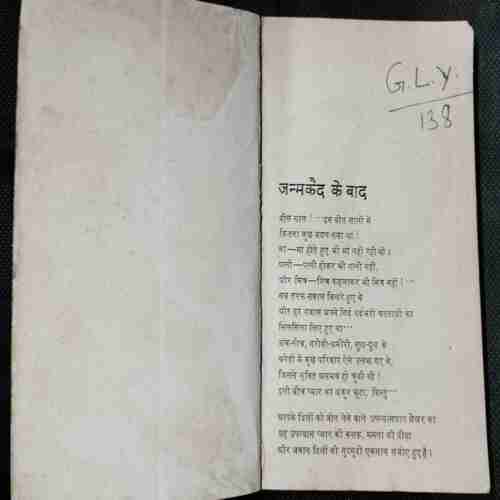 G.L.Y.
138
जन्मकैद के बाद
बीस साल ! ··· इन बीस सालों में
कितना कुछ बदल गया था !
मां—मां होते हुए भी मां नहीं रही थी ।
पत्नी—पत्नी होकर भी पत्नी नहीं,
और मित्र—मित्र कहलाकर भी मित्र नहीं ! ···
सब तरफ सवाल बिखरे हुए थे
और हर सवाल अपने लिए दर्दभरी घटनाओं का
सिलसिला लिए हुए था ···
ऊंच-नीच, गरीबी-अमीरी, सुख-दुख के
घेरे में कुछ परिवार ऐसे उलझ गए थे,
जिनसे मुक्ति असम्भव हो चुकी थी !
इसी बीच प्यार का अंकुर फूटा, किन्तु ···
आपके दिलों को जीत लेने वाले उपन्यासकार का
यह उपन्यास प्यार की कसक, ममता की पीड़ा
और जवान दिलों की गुदगुदी एकसाथ संजोए हुए है ।